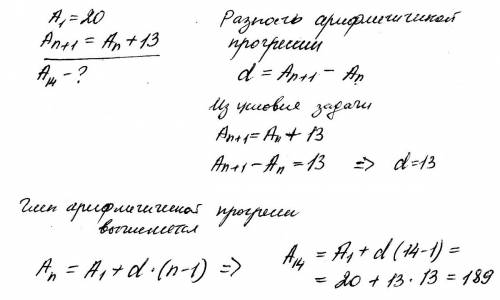 A₁ = 20
Aₙ₊₁ = Aₙ + 13
A₁₄ - ?
Разность арифметической
прогрессии
d = Aₙ₊₁ - Aₙ
Из условия задачи
Aₙ₊₁ = Aₙ + 13
Aₙ₊₁ - Aₙ = 13 => d = 13
Член арифметической прогрессии
вычисляется
Aₙ = A₁ + d · (n-1) =>
A₁₄ = A₁ + d (14-1) =
= 20 + 13 · 13 = 189